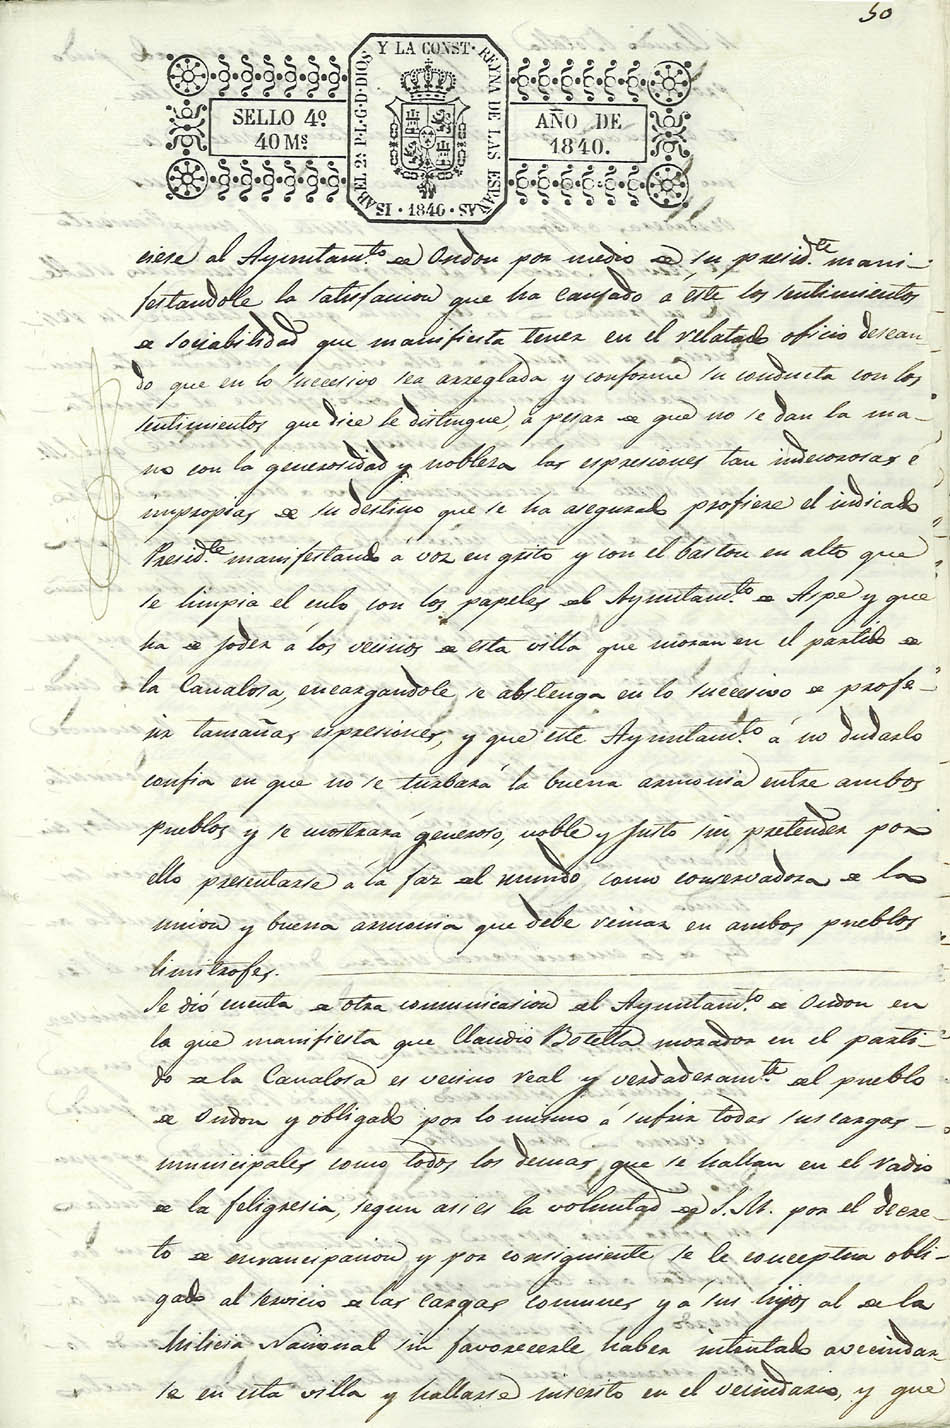 50
Y LA CONST. REYNA DE LAS ESPAÑAS
ISABEL 2ª P.L.G.D.DIOS
SELLO 4º
40 Mˢ
AÑO DE
1840.
1840
ciese al Ayuntamᵗᵒ de Ondon por medio de su presidᵗᵉ mani-
festandole la satisfacion que ha causado á éste los sentimientos
de sociabilidad que manifiesta tener en el relatado oficio desean-
do que en lo sucesivo sea arreglada y conforme su conducta con los
sentimientos que dice le distingue, á pesar de que no se dan la ma-
no con la generosidad y nobleza las espresiones tan indecorosas e
impropias de su destino que se ha asegurado profiere el indicado
Presidᵗᵉ manifestando á voz en grito y con el baston en alto que
se limpia el culo con los papeles del Ayuntamᵗᵒ de Aspe y que
ha de joder á los vecinos de esta villa que moran en el partido de
la Canalosa, encargandole se abstenga en lo sucesivo de profe-
rir tamañas espresiones, y que este Ayuntamᵗᵒ á no dudarlo
confia en que no se turbará la buena armonia entre ambos
pueblos y se mostrará generoso, noble y justo sin pretender por
ello presentarse á la faz del mundo como conservadora de la
union y buena armonia que debe reinar en ambos pueblos
limitrofes.
Se dió cuenta de otra comunicasion del Ayuntamᵗᵒ de Ondon en
la que manifiesta que Claudio Botella morador en el parti-
do de la Canalosa es vecino real y verdaderamᵗᵉ del pueblo
de Ondon y obligado por lo mismo á sufrir todas sus cargas
municipales como todos los demas que se hallan en el radio
de la feligresia, segun asi es la voluntad de S.M. por el decre-
to de emancipacion y por consiguiente se le conceptua obli-
gado al servicio de las cargas comunes y á sus hijos al de la
Milicia Nacional sin favorecerle haber intentado avecindar-
se en esta villa y hallarse inscrito en el vecindario, y que